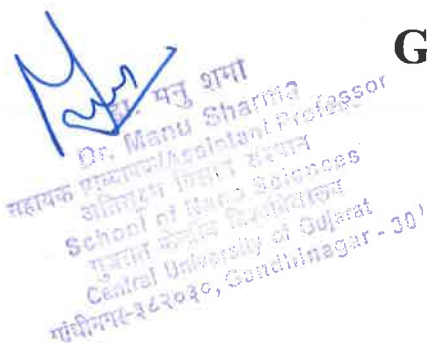 G
डा. मनु शर्मा
Dr. Manu Sharma
सहायक प्राध्यापक/Assistant Professor
विज्ञान संस्थान
School of Nano Sciences
गुजरात केंद्रीय विश्वविद्यालय
Central University of Gujarat
गांधीनगर-३८२०३०, Gandhinagar - 30